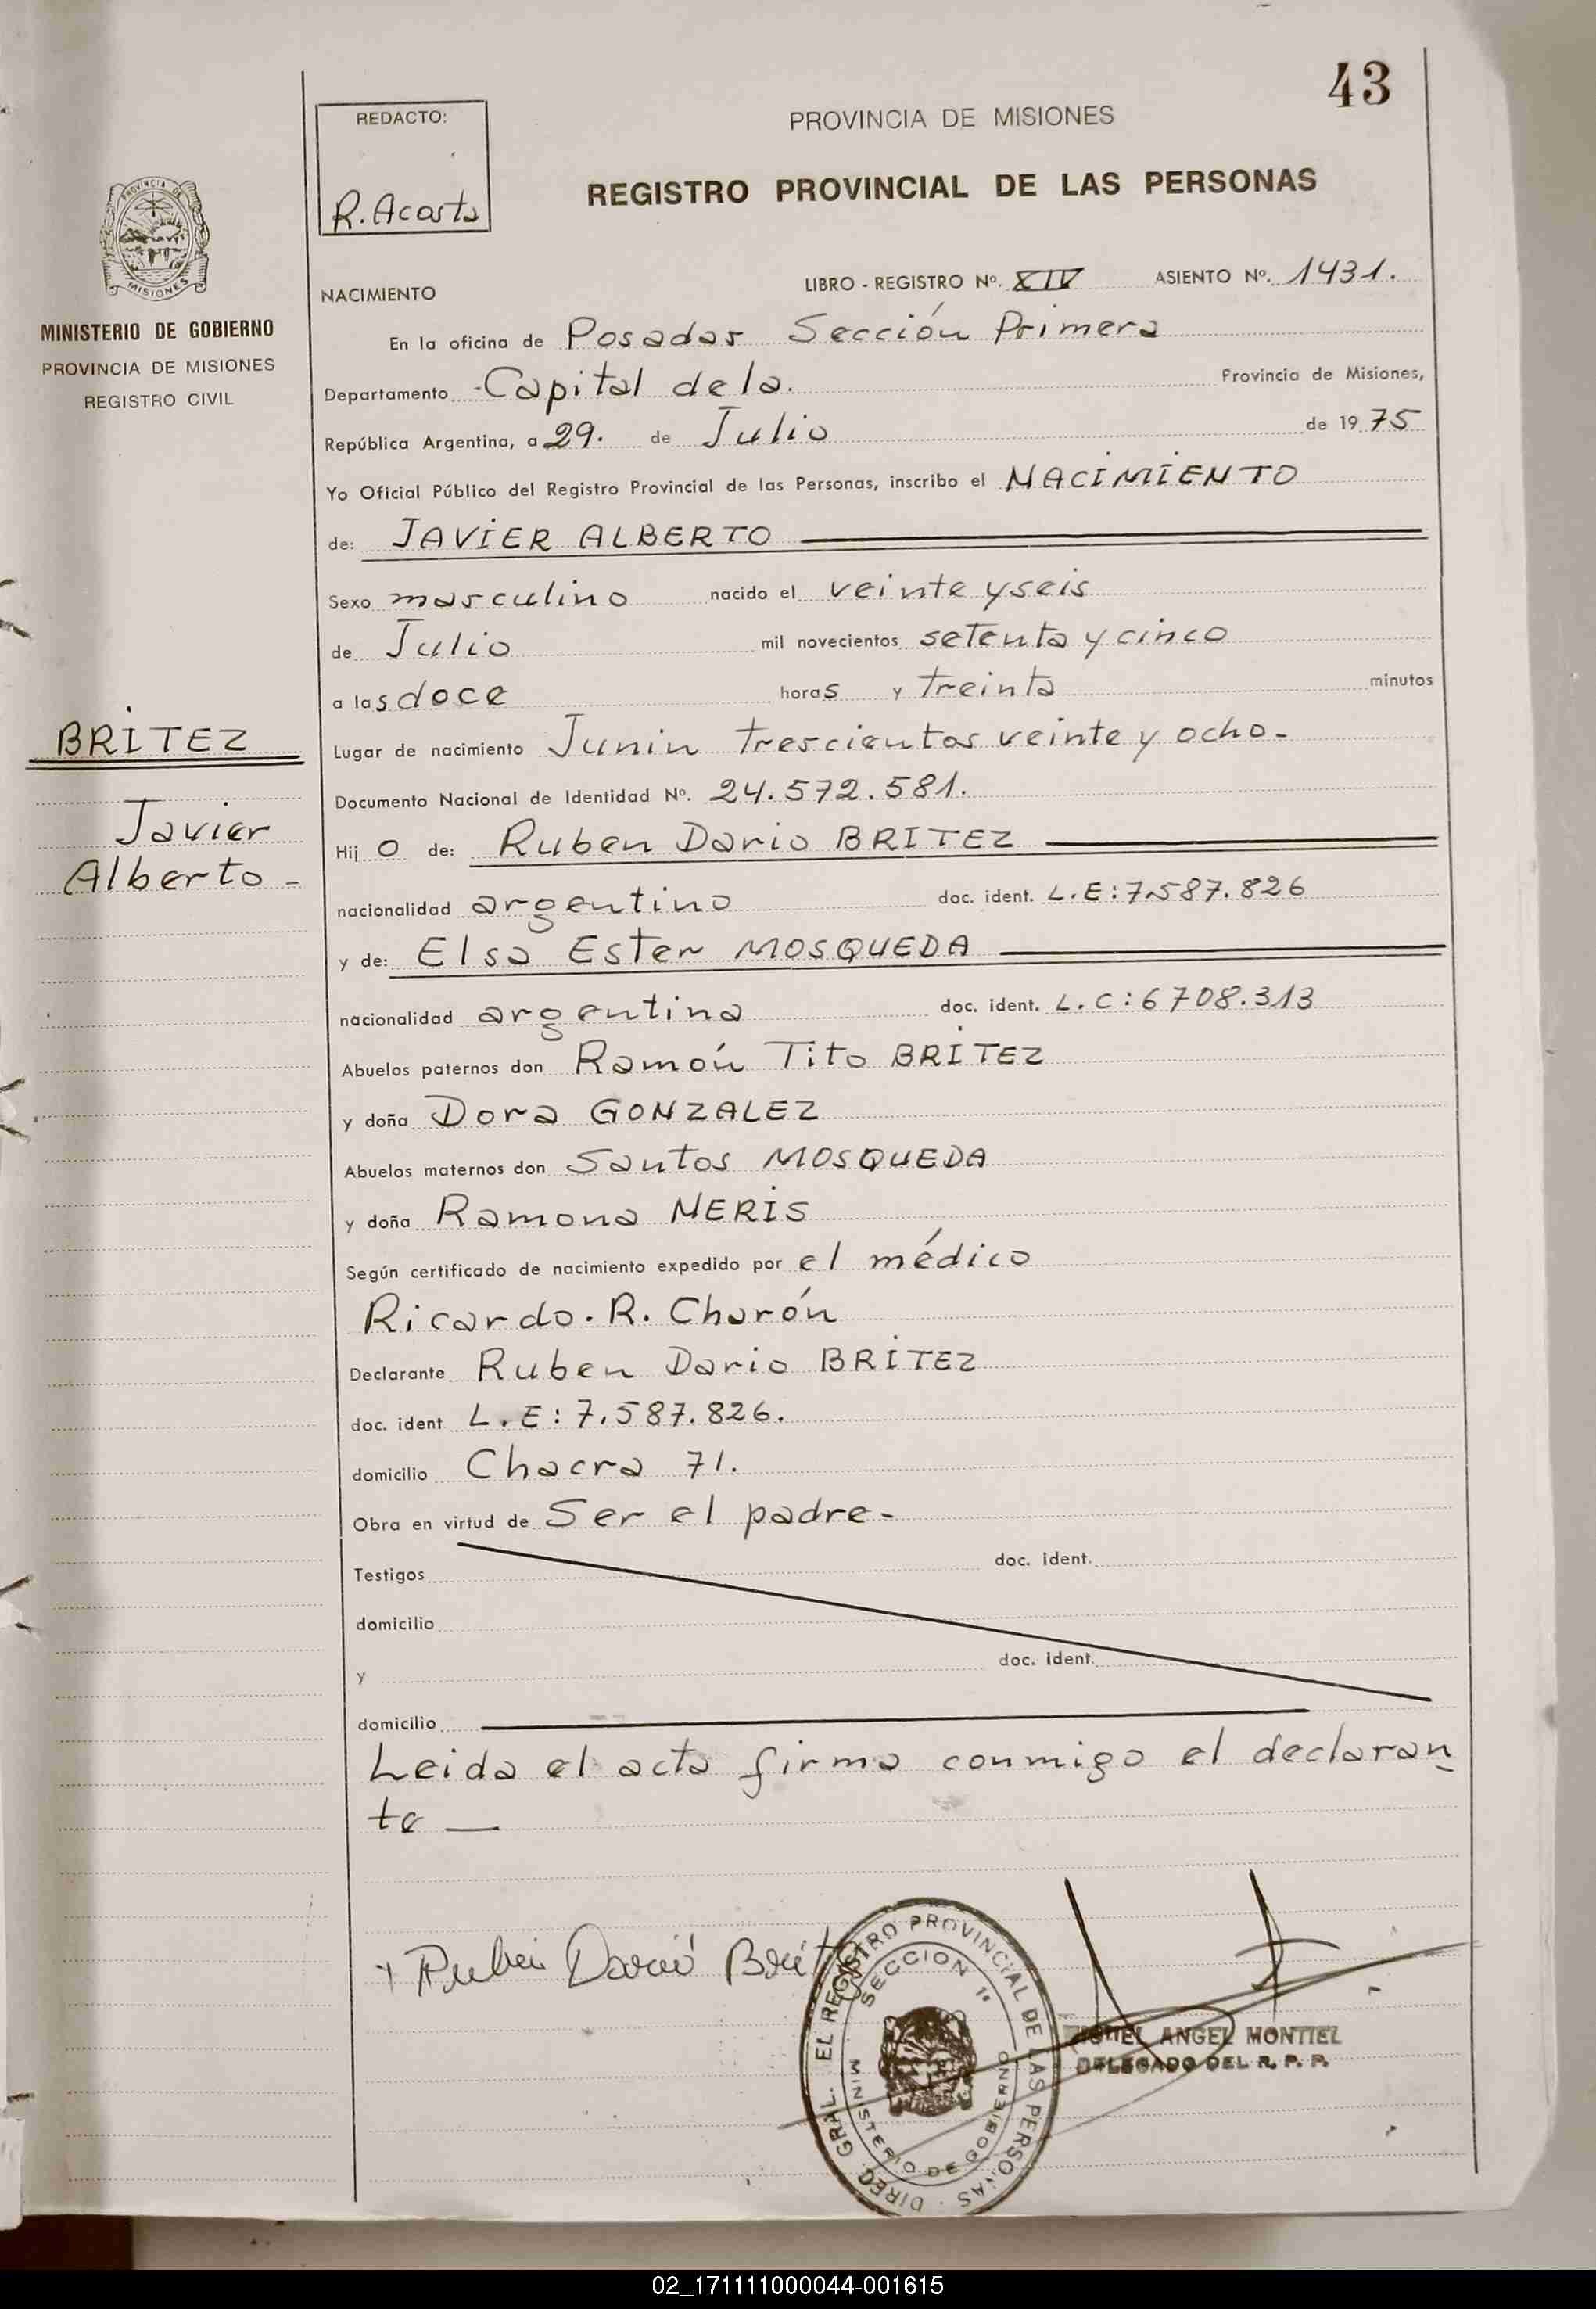 43
REDACTO:
R. Acosta
PROVINCIA DE MISIONES
REGISTRO PROVINCIAL DE LAS PERSONAS
PROVINCIA DE
MISIONES
MINISTERIO DE GOBIERNO
PROVINCIA DE MISIONES
REGISTRO CIVIL
BRITEZ
Javier
Alberto -
NACIMIENTO LIBRO - REGISTRO Nº. XIV ASIENTO Nº. 1431.
En la oficina de Posadas Sección Primera
Departamento Capital de la. Provincia de Misiones,
República Argentina, a 29. de Julio de 1975
Yo Oficial Público del Registro Provincial de las Personas, inscribo el NACIMIENTO
de: JAVIER ALBERTO
Sexo masculino nacido el veinte y seis
de Julio mil novecientos setenta y cinco
a las doce horas y treinta minutos
Lugar de nacimiento Junin trescientos veinte y ocho-
Documento Nacional de Identidad Nº. 24.572.581.
Hijo de: Ruben Dario BRITEZ
nacionalidad argentino doc. ident. L.E:7.587.826
y de: Elsa Ester MOSQUEDA
nacionalidad argentina doc. ident. L.C:6708.313
Abuelos paternos don Ramón Tito BRITEZ
y doña Dora GONZALEZ
Abuelos maternos don Santos MOSQUEDA
y doña Ramona NERIS
Según certificado de nacimiento expedido por el médico
Ricardo. R. Charón
Declarante Ruben Dario BRITEZ
doc. ident. L.E:7.587.826.
domicilio Chacra 71.
Obra en virtud de Ser el padre-
Testigos doc. ident.
domicilio
y doc. ident.
domicilio
Leida el acta firma conmigo el declaran
te
Ruben Darió Britez
DIREC. GRAL. EL REGISTRO PROVINCIAL DE LAS PERSONAS
SECCION 1ª
MINISTERIO DE GOBIERNO
ANGEL MONTIEL
DELEGADO DEL R. P. P.
02_171111000044-001615